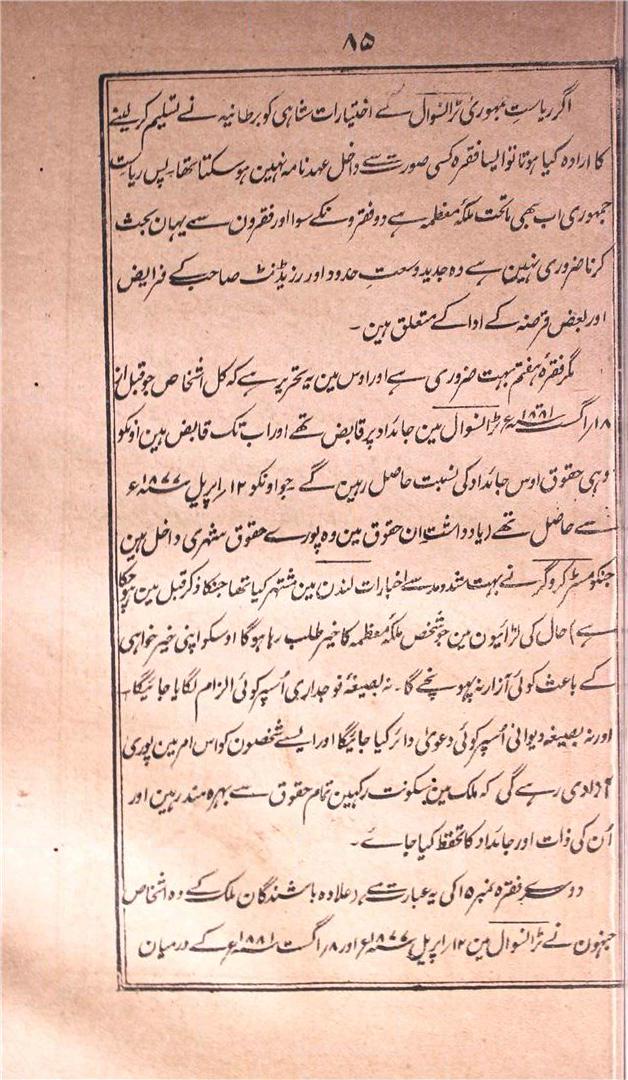 ۸۵
اگر ریاستِ جمہوریٔ ٹرانسوال کے اختیارات شاہی کو برطانیہ نے تسلیم کر لینے
کا ارادہ کیا ہوتا تو ایسا فقرہ کسی صورت سے داخل عہدنامہ نہین ہو سکتا تھا۔ پس ریاست
جمہوری اب بھی ماتحت ملکۂ معظمہ ہے دو فقرونکے سوا اور فقرون سے یہان بحث
کرنا ضروری نہین ہے وہ جدید وسعتِ حدود اور رزیڈنٹ صاحب کے فرایض
اور بعض قرضہ کے ادا کے متعلق ہین۔
مگر فقرۂ ہفتم بہت ضروری ہے اور اوس مین یہ تحریر ہے کہ کل اشخاص جو قبل از
۱۸؍اگست ۱۸۸۱ء ٹرانسوال مین جائداد پر قابض تھے اور اب تک قابض ہین اونکو
وہی حقوق اوس جائداد کی نسبت حاصل رہین گے جو اونکو ۱۲؍اپریل ۱۸۷۷ء
سے حاصل تھے (یادداشت ان حقوق مین وہ پورے حقوق شہری داخل ہین
جنکو مسٹر کروگر نے بہت شدومد سے اخبارات لندن مین مشتہر کیا تھا جنکا ذکر قبل مین ہوچکا
ہے) حال کی لڑائیون مین جو شخص ملکۂ معظمہ کا خیر طلب رہا ہوگا اوسکو اپنی خیرخواہی
کے باعث کوئی آزار نہ پہونچے گا۔ نہ بصیغۂ فوجداری اُسپر کوئی الزام لگایا جائیگا۔
اور نہ بصیغہ دیوانی اُسپر کوئی دعویٰ دائر کیا جائیگا اور ایسے شخصون کو اس امر مین پوری
آزادی رہے گی کہ ملک مین سکونت رکہین تمام حقوق سے بہرہ مند رہین اور
اُن کی ذات اور جائداد کا تحفظ کیا جائے۔
دوسرے فقرہ نمبر ۱۵ کی یہ عبارت ہے، علاوہ باشندگان ملک کے وہ اشخاص
جنہون نے ٹرانسوال مین ۱۲؍اپریل ۱۸۷۷ء اور ۸؍اگست ۱۸۸۱ء کے درمیان